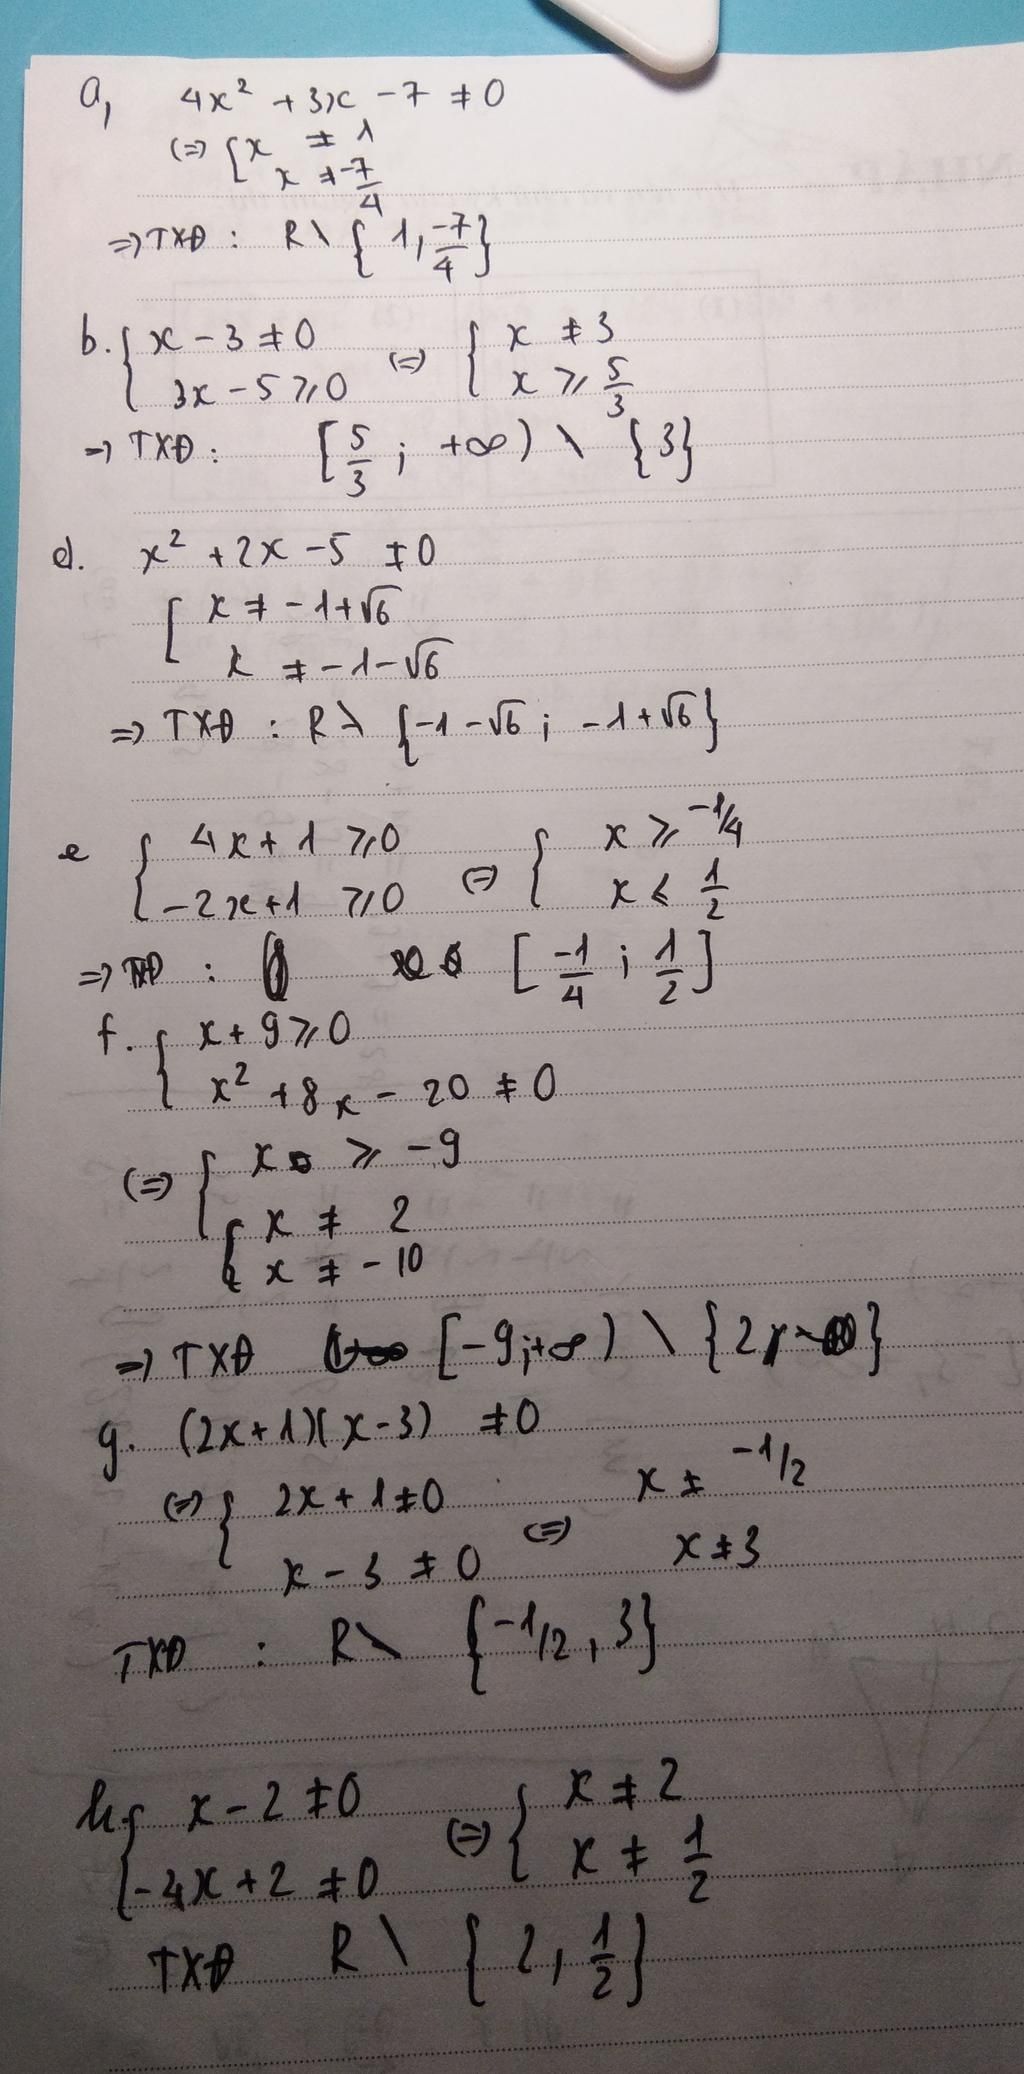 a, 4x² + 3x - 7 ≠ 0
(=) [ x ≠ 1
x ≠ -7/4
=) TXĐ : R \ { 1, -7/4 }
b. { x - 3 ≠ 0 (=) { x ≠ 3
3x - 5 ≥ 0 x ≥ 5/3
=) TXĐ : [ 5/3 ; +∞ ) \ {3}
d. x² + 2x - 5 ≠ 0
[ x ≠ -1+√6
x ≠ -1-√6
=) TXĐ : R \ {-1-√6 ; -1+√6}
e { 4x + 1 ≥ 0 (=) { x ≥ -1/4
-2x+1 ≥ 0 x ≤ 1/2
=) TXĐ : [ -1/4 ; 1/2 ]
f. { x + 9 ≥ 0
x² + 8x - 20 ≠ 0
(=) { x ≥ -9
{ x ≠ 2
x ≠ -10
=) TXĐ [-9;+∞) \ {2}
g. (2x+1)(x-3) ≠ 0
(=) { 2x + 1 ≠ 0 (=) x ≠ -1/2
x - 3 ≠ 0 x ≠ 3
TXĐ : R \ {-1/2, 3}
h { x - 2 ≠ 0 (=) { x ≠ 2
-4x + 2 ≠ 0 x ≠ 1/2
TXĐ R \ { 2, 1/2 }